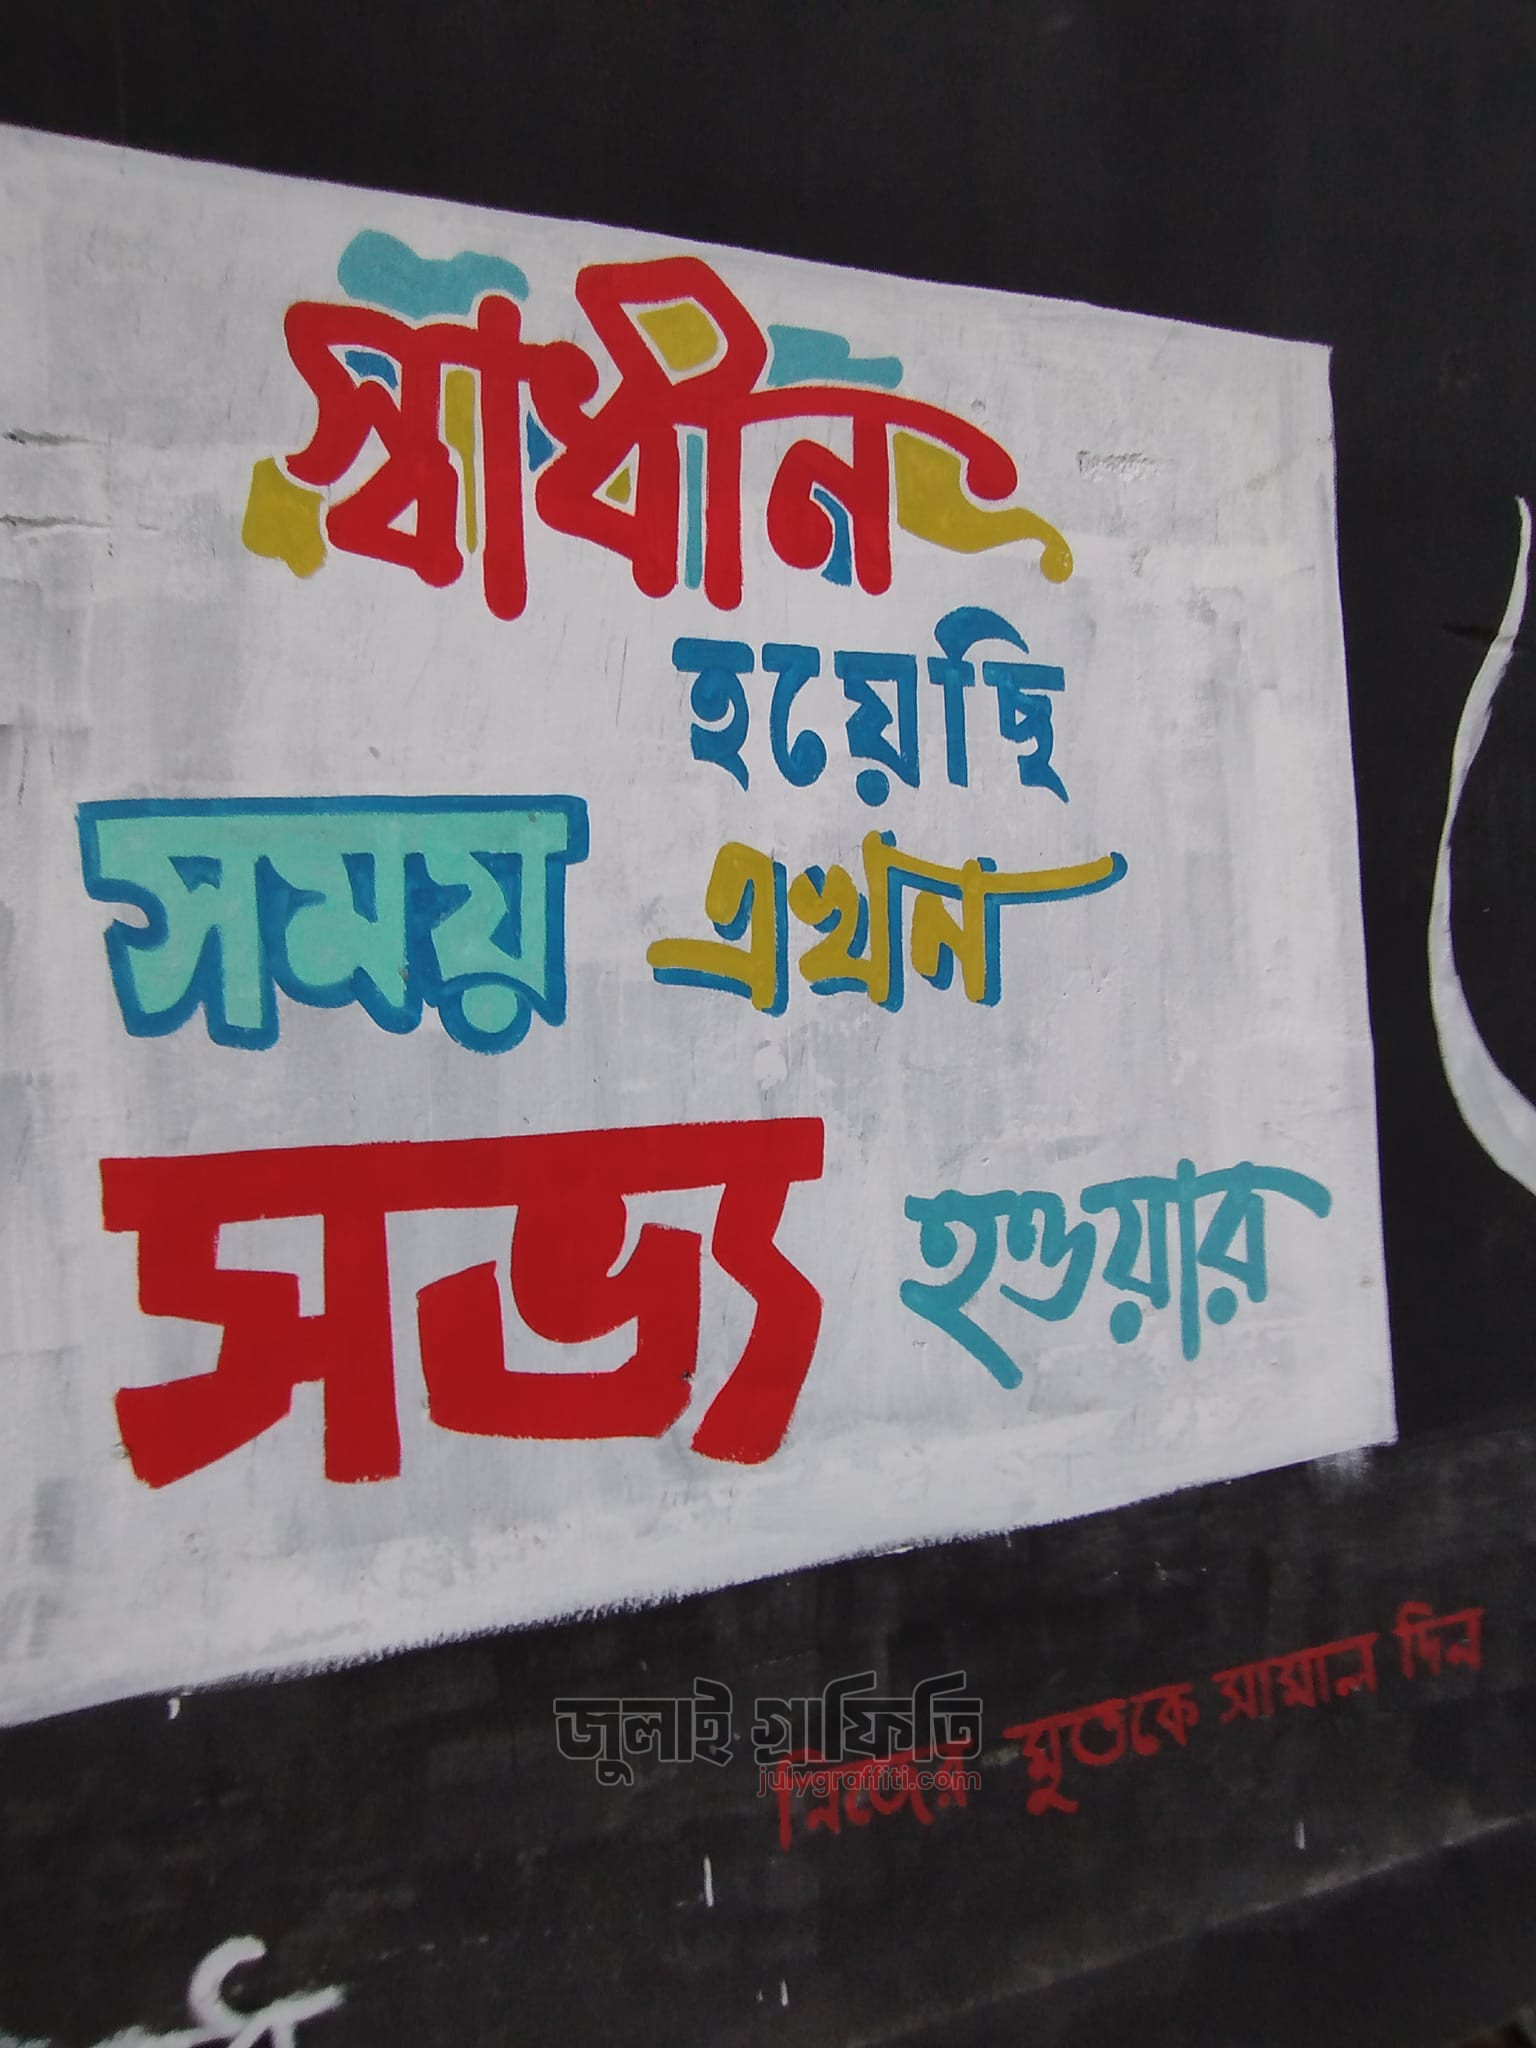 স্বাধীন
হয়েছি
সময় এখন
সভ্য হওয়ার
নিজের মুতকে সামাল দিন
জুলাই গ্রাফিতি
julygraffiti.com